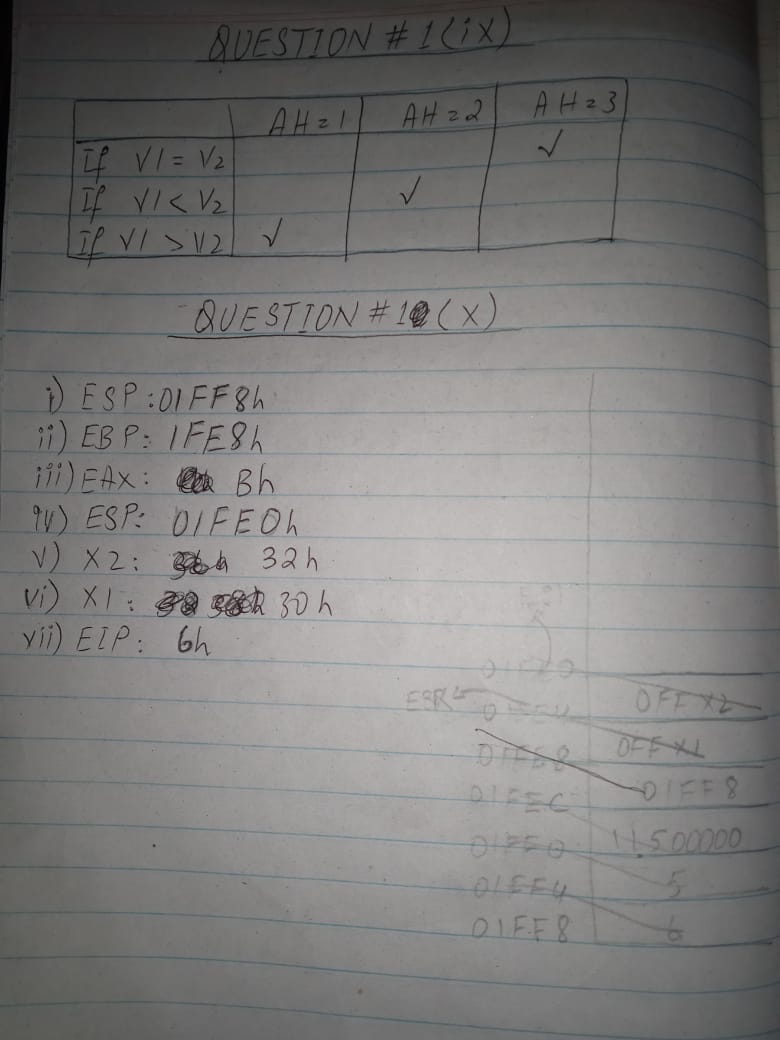 QUESTION # 1(ix)
AH=1 AH=2 AH=3
If V1 = V2 ✓
If V1 < V2 ✓
If V1 > V2 ✓
QUESTION #1 (X)
i) ESP:01FF8h
ii) EBP: 1FE8h
iii) EAX: Bh
iv) ESP: 01FE0h
v) X2: 32h
vi) X1: 30h
vii) EIP: 6h
01FE0
OFF X2
01FE4
OFF X1
01FE8
01FF8
01FEC
01FF0
5
01FF4
6
01FF8